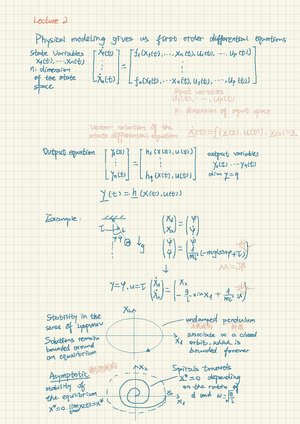 Lecture 2
Physical modeling gives us first order differential equations
State variables
x₁(t), ... xₙ(t)
n: dimension
of the state
space
[ẋ₁(t) ⋮ ẋₙ(t)] = [f₁(x₁(t), ... xₙ(t), u₁(t), ... up(t)) ⋮ fₙ(x₁(t), ... xₙ(t), u₁(t), ... up(t))]
input variables
u₁(t), ..., up(t)
p: dimension of input space
Vector notation of the
state differential equation
ẋ(t) = f(x(t), u(t))
Output equation
[y₁(t) ⋮ yq(t)] = [h₁(x(t), u(t)) ⋮ hq(x(t), u(t))]
output variables
y₁(t) ... yq(t)
dim y = q
y(t) = h(x(t), u(t))
Example:
↓g
Stability in the
sense of Lyapunov
Solutions remain
bounded around
an equilibrium
undamped pendulum
associate as a closed
orbit, which is
bounded forever
Asymptotic
stability of
the equilibrium
Spirals towards
x* = 0 depending
on the ratio of
d and